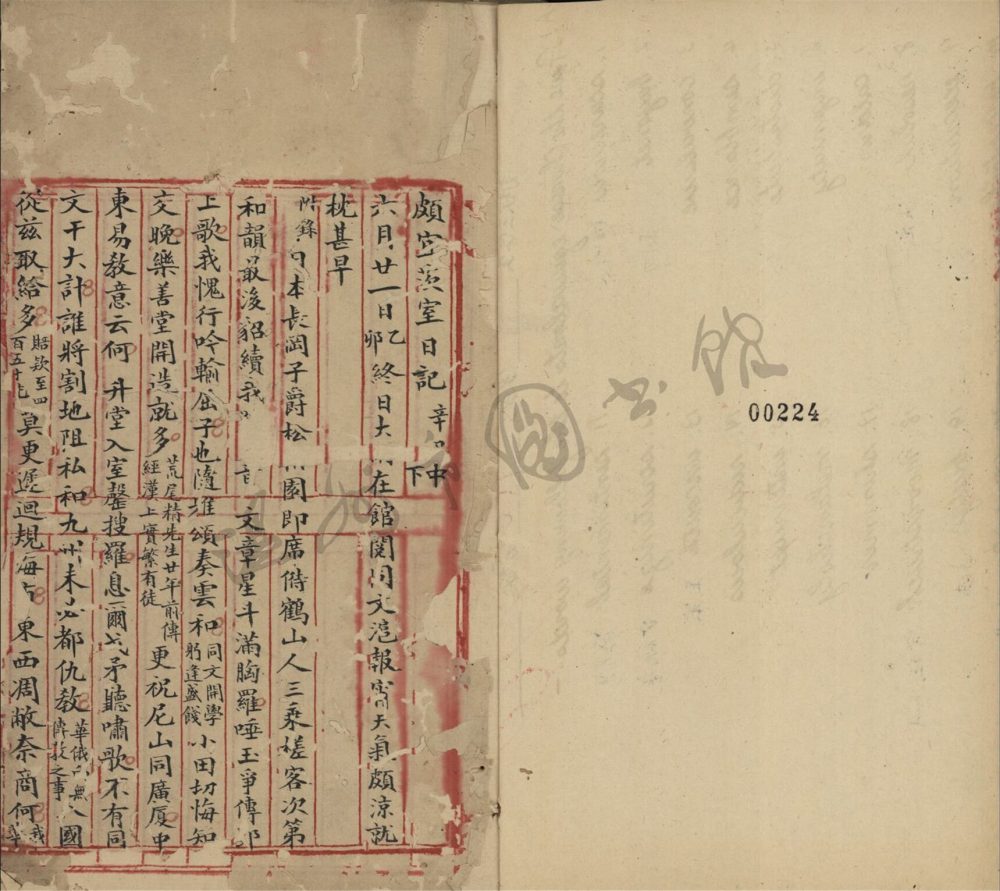 頗宜茨室日記 辛 中下
六月廿一日乙卯終日大 在館閱同文滬報 天氣頗涼就
枕甚早
附錄日本長岡子爵松 園即席倚鶴山人三乘槎客次第
和韻最後貂續我 文章星斗滿胸羅唾玉爭傳郢
上歌我愧行吟輸屈子也隨 頌奏雲和同文開學躬逢盛餞小田切悔知
交晚樂善堂開造就多荒尾精先生廿年前傳經漢上實繁有徒更祝尼山同廣厦中
東易教意云何 升堂入室罄搜羅息爾戈矛聽嘯歌不有同
文干大計誰將割地阻私和九州未必都仇教華俄 無傳教之事 國
從茲取給多賠款至四百五十兆莫更遲迴規海 東西凋敝奈商何我
00224